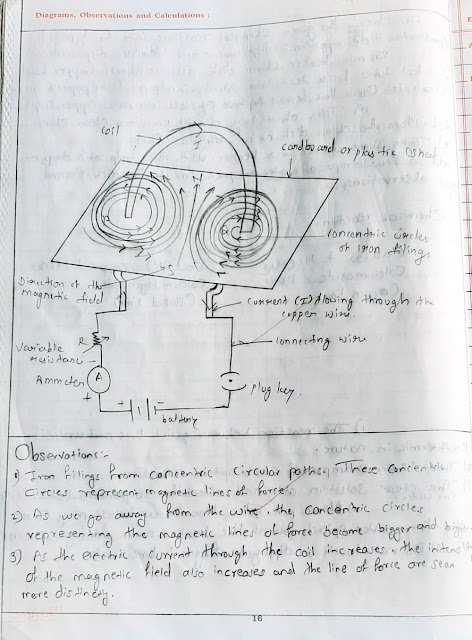 Diagrams, Observations and Calculations :
Coil
I
cardboard or plastic sheet
N
P
concentric circles
of iron filings
S
Direction of the
magnetic field
current (I) flowing through the
copper wire.
R
Variable
resistance
connecting wire
Ammeter
A
+
plug key.
battery
Observations:-
1) Iron filings from concentric circular paths. These concentric
circles represent magnetic lines of force.
2) As we go away from the wire, the concentric circles
representing the magnetic lines of force become bigger and bigger
3) As the electric current through the coil increases, the
of the magnetic field also increases and the line of force are seen
more distinctly.
16